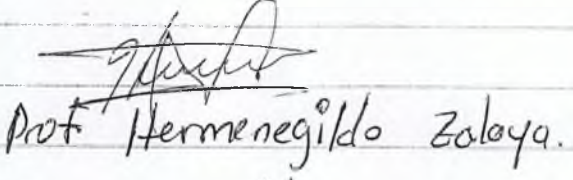 Prof. Hermenegildo Zalaya.